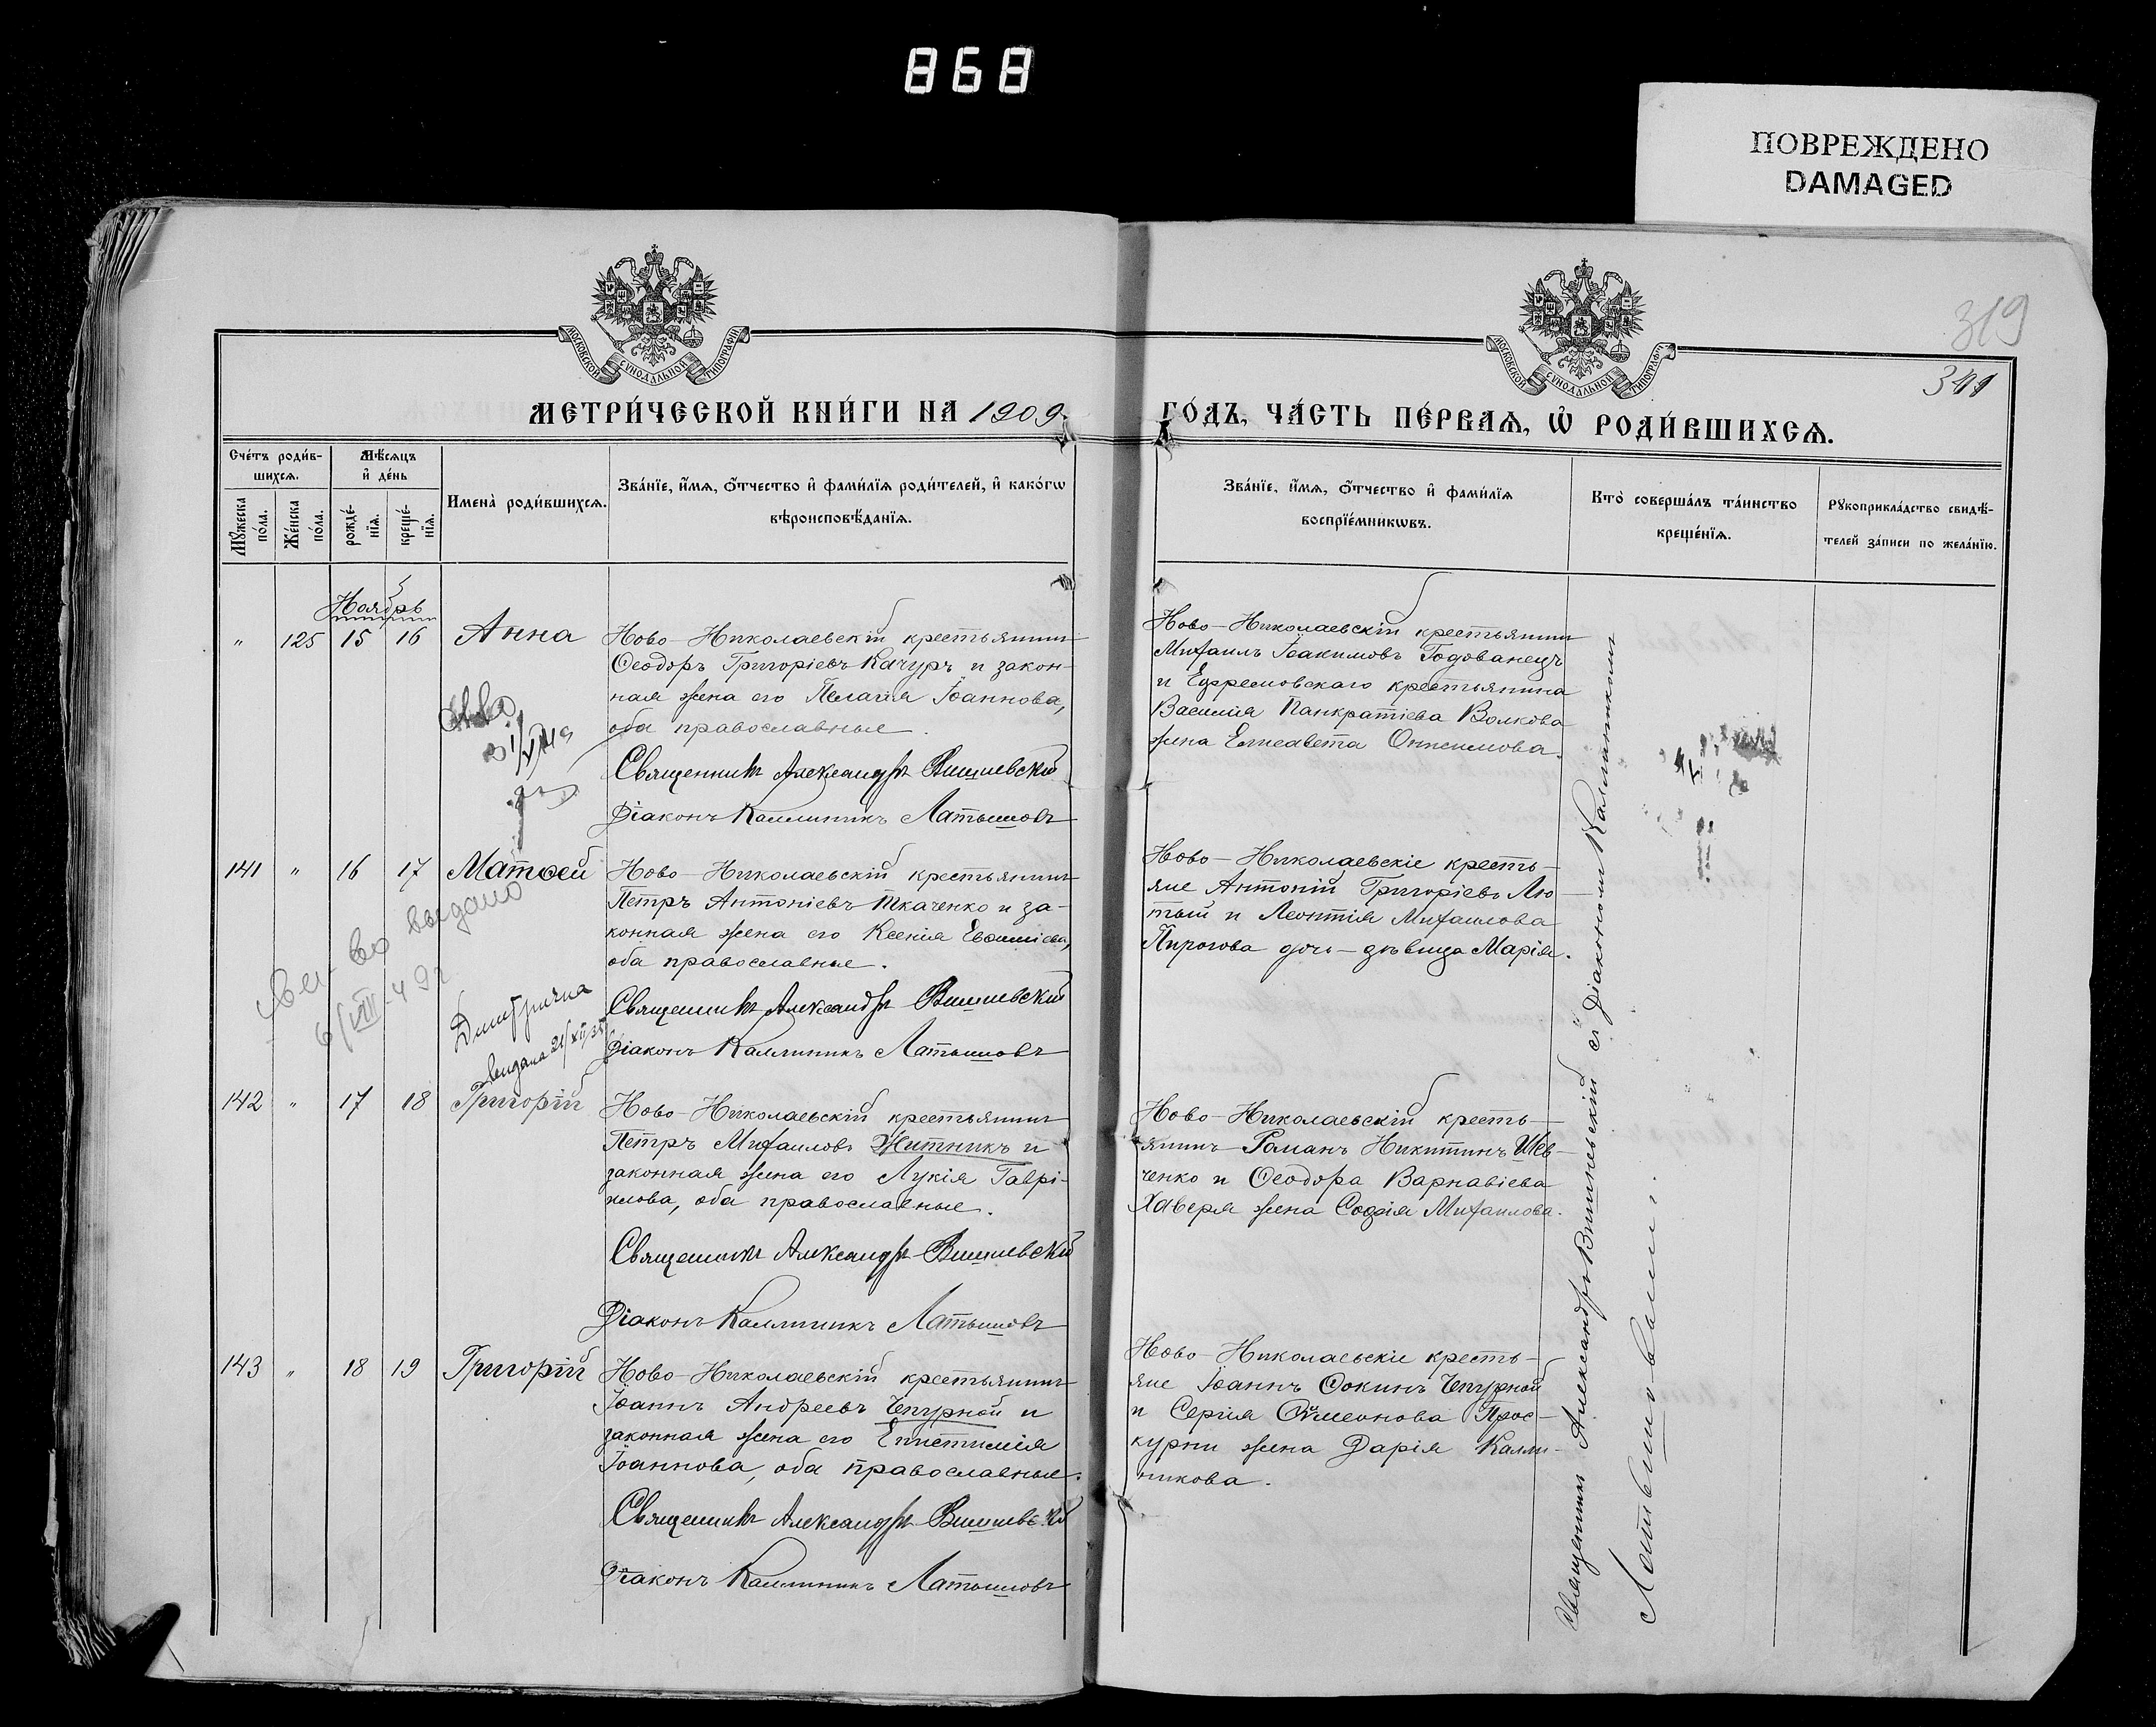 868
ПОВРЕЖДЕНО
DAMAGED
МОСКОВСКОЙ СѴНОДАЛЬНОЙ ТИПОГРАФІИ
МОСКОВСКОЙ СѴНОДАЛЬНОЙ ТИПОГРАФІИ
319
341
МЕТРИ́ЧЕСКОЙ КНИ́ГИ НА 1909
ГО́ДЪ, ЧА́СТЬ ПЕ́РВАѦ, Ѡ҆ РОДИ́ВШИХСѦ.
Сче́тъ роди́в-
шихсѧ.
Мꙋжеска по́ла.
Же́нска по́ла.
Мѣ́сѧцъ
и҆ де́нь
рожде́-
нїѧ.
креще́-
нїѧ.
Имена̀ роди́вшихсѧ.
Зва́нїе, и҆́мѧ, ѻ҆́тчество и҆ фами́лїѧ роди́телей, и҆ како́гѡ
вѣроисповѣ́данїѧ.
Зва́нїе, и҆́мѧ, ѻ҆́тчество и҆ фами́лїѧ
воспрїе́мникѡвъ.
Кто̀ соверша́лъ та́инство
креще́нїѧ.
Рꙋкоприкла́дство свидѣ́-
телей за́писи по жела́нїю.
Ноябрь
" 125 15 16 Анна
Ново-Николаевскій крестьянинъ
Ѳеодоръ Григоріевъ Качуръ и закон-
ная жена его Пелагія Іоаннова,
оба православные.
Священникъ Александръ Вишневскій
Діаконъ Каллиникъ Латышовъ
Ново-Николаевскій крестьянинъ
Михаилъ Іоакимовъ Годованецъ
и Ефремовскаго крестьянина
Василія Панкратіева Волкова
жена Елисавета Онисимова.
141 " 16 17 Матѳей
Ново-Николаевскій крестьянинъ
Петръ Антоніевъ Ткаченко и за-
конная жена его Ксенія Евѳиміева,
оба православные.
Священникъ Александръ Вишневскій
Діаконъ Каллиникъ Латышовъ
Ново-Николаевскіе кресть-
яне Антоній Григоріевъ Лю-
тый и Леонтія Михаилова
Пирогова дочь-дѣвица Марія.
св-во выдано
6/VIII-49г
выдана 21/XII 35
142 " 17 18 Григорій
Ново-Николаевскій крестьянинъ
Петръ Михаиловъ Житникъ и
законная жена его Лукія Гаврі-
илова, оба православные.
Священникъ Александръ Вишневскій
Діаконъ Каллиникъ Латышовъ
Ново-Николаевскій кресть-
янинъ Романъ Никитинъ Шев-
ченко и Ѳеодора Варнавіева
Хаверя жена Софія Михаилова.
143 " 18 19 Григорій
Ново-Николаевскій крестьянинъ
Іоаннъ Андреевъ Чепурной и
законная жена его Епистимія
Іоаннова, оба православные.
Священникъ Александръ Вишневскій
Діаконъ Каллиникъ Латышовъ
Ново-Николаевскіе кресть-
яне Іоаннъ Ѳокинъ Чепурной
и Сергія Сѵмеонова Прос-
курни жена Дарія Калли-
никова.
Священникъ Александръ Вишневскій съ Діакономъ Каллиникомъ
Латышовымъ.